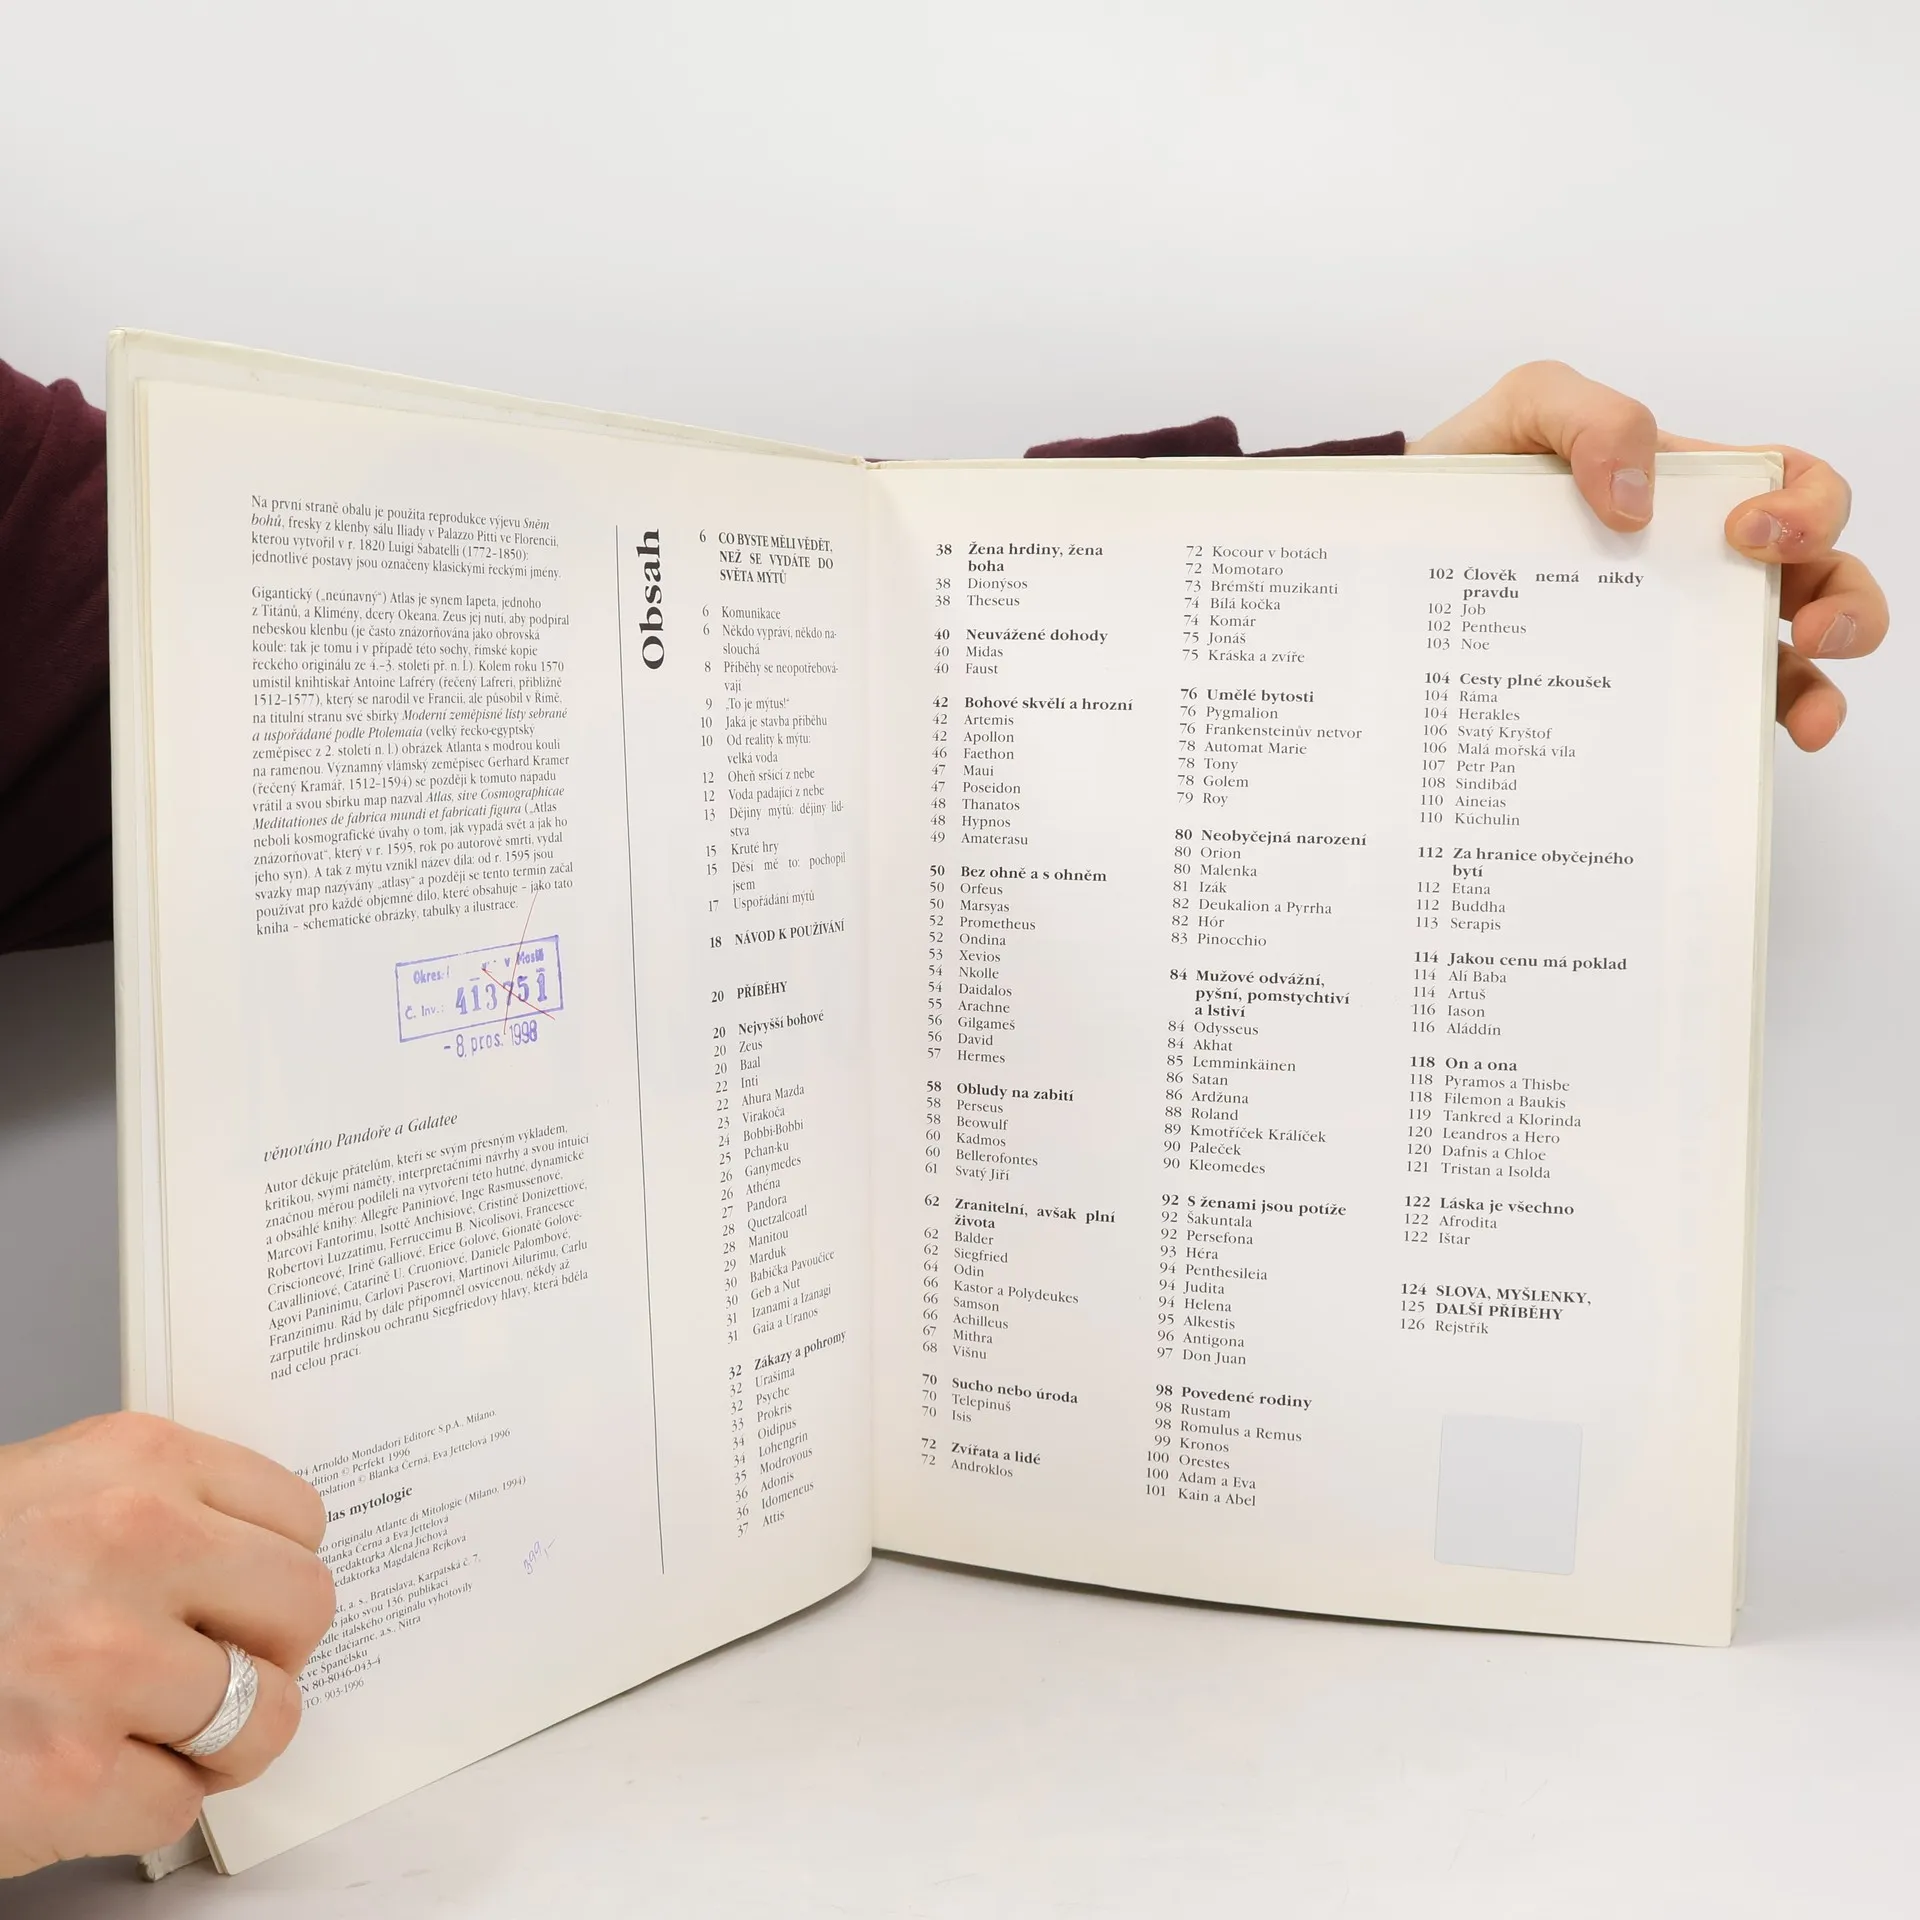 Na první straně obalu je použita reprodukce výjevu Sněm
bohů, fresky z klenby sálu Iliady v Palazzo Pitti ve Florencii,
kterou vytvořil v r. 1820 Luigi Sabatelli (1772–1850):
jednotlivé postavy jsou označeny klasickými řeckými jmény.
Gigantický („neúnavný“) Atlas je synem Iapeta, jednoho
z Titánů, a Klimény, dcery Okeana. Zeus jej nutí, aby podpíral
nebeskou klenbu (je často znázorňována jako obrovská
koule: tak je tomu i v případě této sochy, římské kopie
řeckého originálu ze 4.–3. století př. n. l.). Kolem roku 1570
umístil knihtiskař Antoine Lafréry (řečený Lafreri, přibližně
1512–1577), který se narodil ve Francii, ale působil v Římě,
na titulní stranu své sbírky Moderní zeměpisné listy sebrané
a uspořádané podle Ptolemaia (velký řecko-egyptský
zeměpisec z 2. století n. l.) obrázek Atlanta s modrou koulí
na ramenou. Významný vlámský zeměpisec Gerhard Kramer
(řečený Kramář, 1512–1594) se později k tomuto nápadu
vrátil a svou sbírku map nazval Atlas, sive Cosmographicae
Meditationes de fabrica mundi et fabricati figura („Atlas
neboli kosmografické úvahy o tom, jak vypadá svět a jak ho
znázorňovat“, který v r. 1595, rok po autorově smrti, vydal
jeho syn). A tak z mýtu vznikl název díla: od r. 1595 jsou
svazky map nazývány „atlasy“ a později se tento termín začal
používat pro každé objemné dílo, které obsahuje – jako tato
kniha – schematické obrázky, tabulky a ilustrace.
Okres. v Mostě
Č. Inv.: 413751
-8. pros. 1998
věnováno Pandoře a Galatee
Autor děkuje přátelům, kteří se svým přesným výkladem,
kritikou, svými náměty, interpretačními návrhy a svou intuicí
značnou měrou podíleli na vytvoření této hutné, dynamické
a obsáhlé knihy: Allegře Paniniové, Inge Rasmussenové,
Marcovi Fantorimu, Isottě Anchisiové, Cristině Donizettiové,
Robertovi Luzzatimu, Ferruccimu B. Nicolisovi, Francesce
Criscioneové, Irině Galliové, Erice Golové, Gionatě Golové-
Cavalliniové, Catarině U. Cruoniové, Daniele Palombové,
Agovi Paninimu, Carlovi Paserovi, Martinovi Ailurimu, Carlu
Franzinimu. Rád by dále připomněl osvícenou, někdy až
zarputile hrdinskou ochranu Siegfriedovy hlavy, která bděla
nad celou prací.
Arnoldo Mondadori Editore S.p.A., Milano.
dition © Perfekt 1996
nslation © Blanka Černá, Eva Jettelová 1996
las mytologie
ho originálu Atlante di Mitologie (Milano, 1994)
Blanka Černá a Eva Jettelová
redaktorka Alena Jichová
edaktorka Magdaléna Rejková
kt, a. s., Bratislava, Karpatská č. 7,
6 jako svou 136. publikaci
odle italského originálu vyhotovily
anske tlačiarne, a.s., Nitra
k ve Španělsku
N 80-8046-043-4
TO: 903-1996
399,-
Obsah
6 CO BYSTE MĚLI VĚDĚT,
NEŽ SE VYDÁTE DO
SVĚTA MÝTŮ
6 Komunikace
6 Někdo vypráví, někdo na-
slouchá
8 Příběhy se neopotřebová-
vají
9 „To je mýtus!“
10 Jaká je stavba příběhu
10 Od reality k mýtu:
velká voda
12 Oheň sršící z nebe
12 Voda padající z nebe
13 Dějiny mýtů: dějiny lid-
stva
15 Kruté hry
15 Děsí mě to: pochopil
jsem
17 Uspořádání mýtů
18 NÁVOD K POUŽÍVÁNÍ
20 PŘÍBĚHY
20 Nejvyšší bohové
20 Zeus
20 Baal
22 Inti
22 Ahura Mazda
23 Virakoča
24 Bobbi-Bobbi
25 Pchan-ku
26 Ganymedes
26 Athéna
27 Pandora
28 Quetzalcoatl
28 Manitou
29 Marduk
30 Babička Pavoučice
30 Geb a Nut
31 Izanami a Izanagi
31 Gaia a Uranos
32 Zákazy a pohromy
32 Urašima
32 Psyche
33 Prokris
34 Oidipus
34 Lohengrin
35 Modrovous
36 Adonis
36 Idomeneus
37 Attis
38 Žena hrdiny, žena
boha
38 Dionýsos
38 Theseus
40 Neuvážené dohody
40 Midas
40 Faust
42 Bohové skvělí a hrozní
42 Artemis
42 Apollon
46 Faethon
47 Maui
47 Poseidon
48 Thanatos
48 Hypnos
49 Amaterasu
50 Bez ohně a s ohněm
50 Orfeus
50 Marsyas
52 Prometheus
52 Ondina
53 Xevios
54 Nkolle
54 Daidalos
55 Arachne
56 Gilgameš
56 David
57 Hermes
58 Obludy na zabití
58 Perseus
58 Beowulf
60 Kadmos
60 Bellerofontes
61 Svatý Jiří
62 Zranitelní, avšak plní
života
62 Balder
62 Siegfried
64 Odin
66 Kastor a Polydeukes
66 Samson
66 Achilleus
67 Mithra
68 Višnu
70 Sucho nebo úroda
70 Telepinuš
70 Isis
72 Zvířata a lidé
72 Androklos
72 Kocour v botách
72 Momotaro
73 Brémští muzikanti
74 Bílá kočka
74 Komár
75 Jonáš
75 Kráska a zvíře
76 Umělé bytosti
76 Pygmalion
76 Frankensteinův netvor
78 Automat Marie
78 Tony
78 Golem
79 Roy
80 Neobyčejná narození
80 Orion
80 Malenka
81 Izák
82 Deukalion a Pyrrha
82 Hór
83 Pinocchio
84 Mužové odvážní,
pyšní, pomstychtiví
a lstiví
84 Odysseus
84 Akhat
85 Lemminkäinen
86 Satan
86 Ardžuna
88 Roland
89 Kmotříček Králíček
90 Paleček
90 Kleomedes
92 S ženami jsou potíže
92 Šakuntala
92 Persefona
93 Héra
94 Penthesileia
94 Judita
94 Helena
95 Alkestis
96 Antigona
97 Don Juan
98 Povedené rodiny
98 Rustam
98 Romulus a Remus
99 Kronos
100 Orestes
100 Adam a Eva
101 Kain a Abel
102 Člověk nemá nikdy
pravdu
102 Job
102 Pentheus
103 Noe
104 Cesty plné zkoušek
104 Ráma
104 Herakles
106 Svatý Kryštof
106 Malá mořská víla
107 Petr Pan
108 Sindibád
110 Aineias
110 Kúchulin
112 Za hranice obyčejného
bytí
112 Etana
112 Buddha
113 Serapis
114 Jakou cenu má poklad
114 Alí Baba
114 Artuš
116 Iason
116 Aláddín
118 On a ona
118 Pyramos a Thisbe
118 Filemon a Baukis
119 Tankred a Klorinda
120 Leandros a Hero
120 Dafnis a Chloe
121 Tristan a Isolda
122 Láska je všechno
122 Afrodita
122 Ištar
124 SLOVA, MYŠLENKY,
125 DALŠÍ PŘÍBĚHY
126 Rejstřík